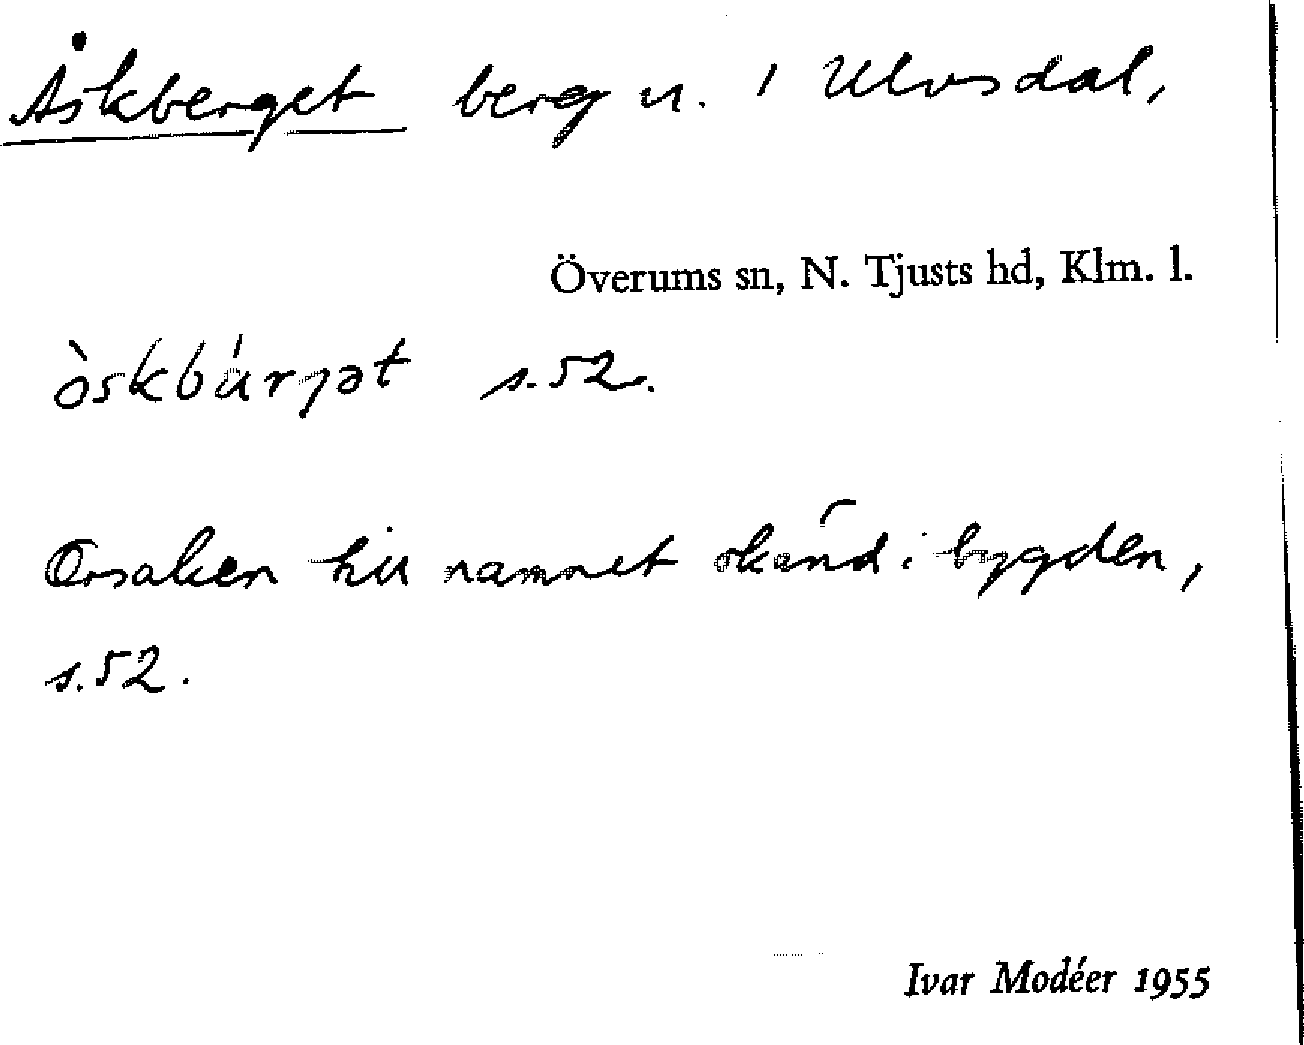 Åskberget berg n. i Ulvsdal,
Överums sn, N. Tjusts hd, Klm. l.
òskbárjət s. 52.
Orsaken till namnet okänd i bygden,
s. 52.
Ivar Modéer 1955